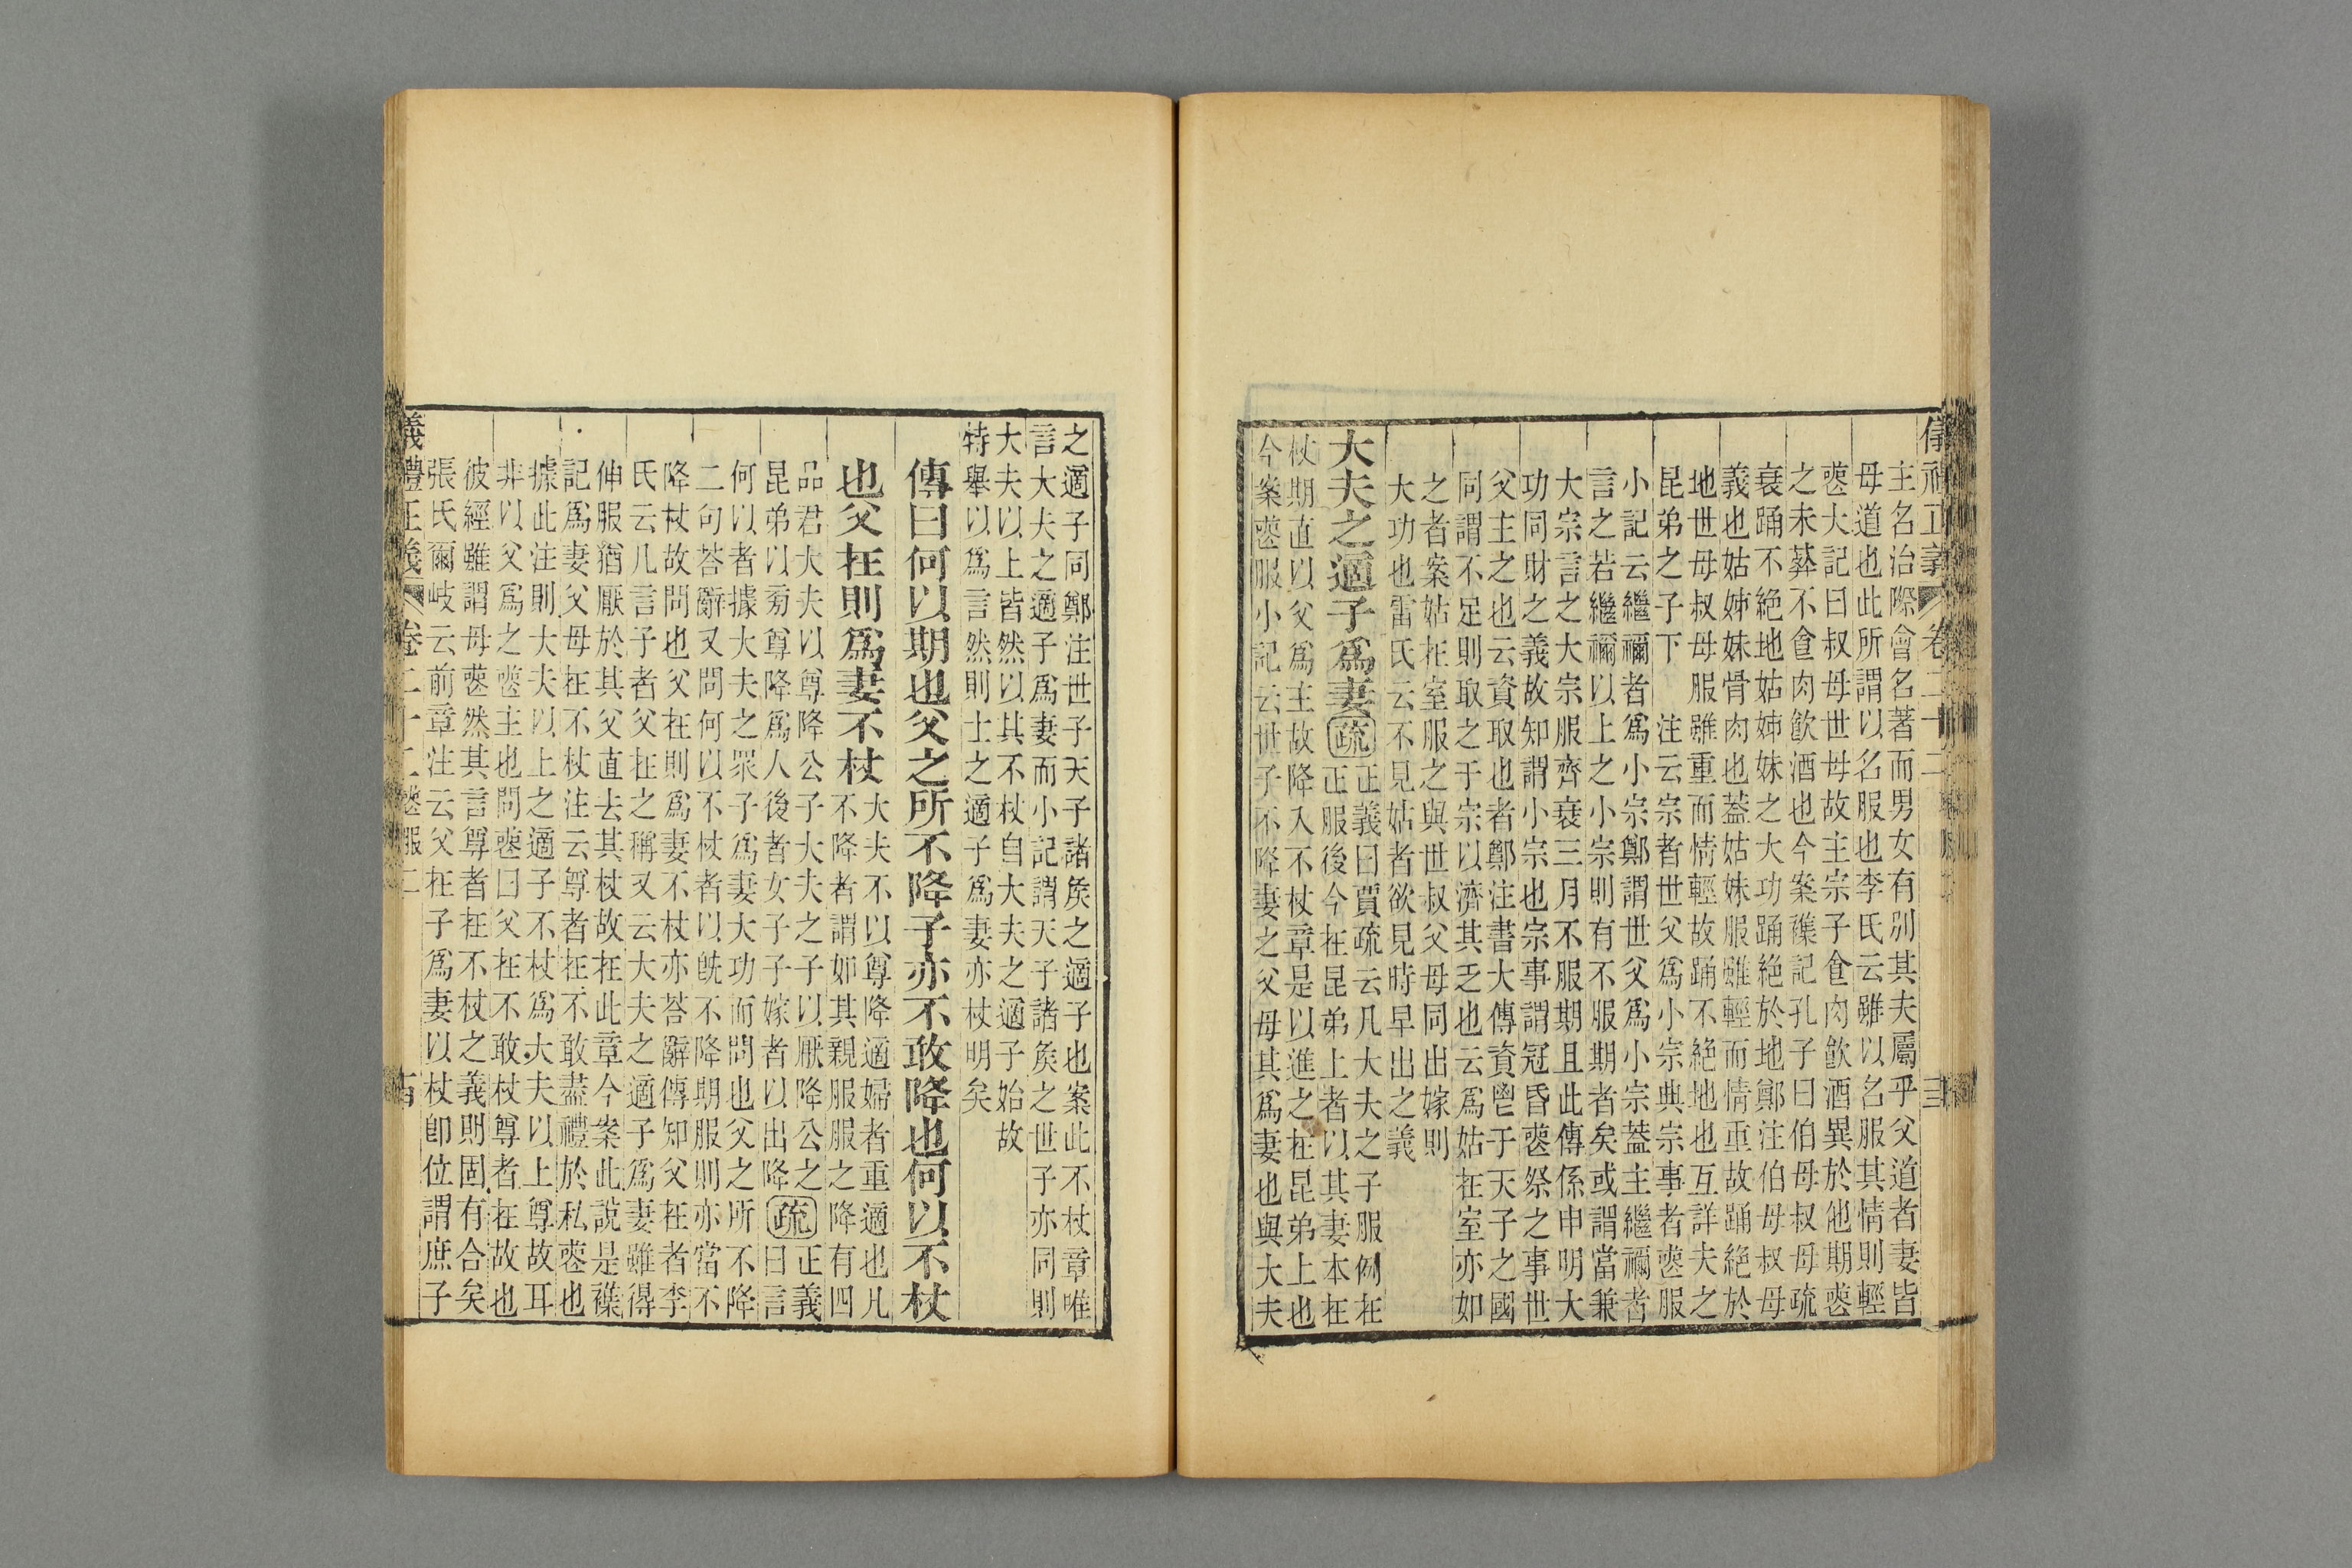 儀禮正義 卷二十二 三
主名治際會名著而男女有別其夫屬乎父道者妻皆
母道也此所謂以名服也李氏云雖以名服其情則輕
喪大記曰叔母世母故主宗子食肉飲酒異於他期喪
之未葬不食肉飲酒也今案襍記孔子曰伯母叔母疏
衰踊不絶地姑姊妹之大功踊絶於地鄭注伯母叔母
義也姑姊妹骨肉也蓋姑妹服雖輕而情重故踊絶於
地世母叔母服雖重而情輕故踊不絶地也互詳夫之
昆弟之子下　注云宗者世父爲小宗典宗事者喪服
小記云繼禰者爲小宗鄭謂世父爲小宗蓋主繼禰者
言之若繼禰以上之小宗則有不服期者矣或謂當兼
大宗言之大宗服齊衰三月不服期且此傳係申明大
功同財之義故知謂小宗也宗事謂冠昏喪祭之事世
父主之也云資取也者鄭注書大傳資鬯于天子之國
同謂不足則取之于宗以濟其乏也云爲姑在室亦如
之者案姑在室服之與世叔父母同出嫁則
大功也雷氏云不見姑者欲見時早出之義
大夫之適子爲妻疏
正義曰賈疏云凡大夫之子服例在
正服後今在昆弟上者以其妻本在
杖期直以父爲主故降入不杖章是以進之在昆弟上也
今案喪服小記云世子不降妻之父母其爲妻也與大夫
之適子同鄭注世子天子諸矦之適子也案此不杖章唯
言大夫之適子爲妻而小記謂天子諸矦之世子亦同則
大夫以上皆然以其不杖自大夫之適子始故
特舉以爲言然則士之適子爲妻亦杖明矣
傳曰何以期也父之所不降子亦不敢降也何以不杖
也父在則爲妻不杖
大夫不以尊降適婦者重適也凡
不降者謂如其親服服之降有四
品君大夫以尊降公子大夫之子以厭降公之
昆弟以旁尊降爲人後者女子子嫁者以出降疏
正義
曰言
何以者據大夫之眾子爲妻大功而問也父之所不降
二句荅辭又問何以不杖者以旣不降期服則亦當不
降杖故問也父在則爲妻不杖亦荅辭傳知父在者李
氏云凡言子者父在之稱又云大夫之適子爲妻雖得
伸服猶厭於其父直去其杖故在此章今案此說是襍
記爲妻父母在不杖注云尊者在不敢蓋禮於私喪也
據此注則大夫以上之適子不杖爲大夫以上尊故耳
非以父爲之喪主也問喪曰父在不敢杖尊者在故也
彼經雖謂母喪然其言尊者在不杖之義則固有合矣
張氏爾岐云前章注云父在子爲妻以杖卽位謂庶子
儀禮正義 卷二十二 喪服二